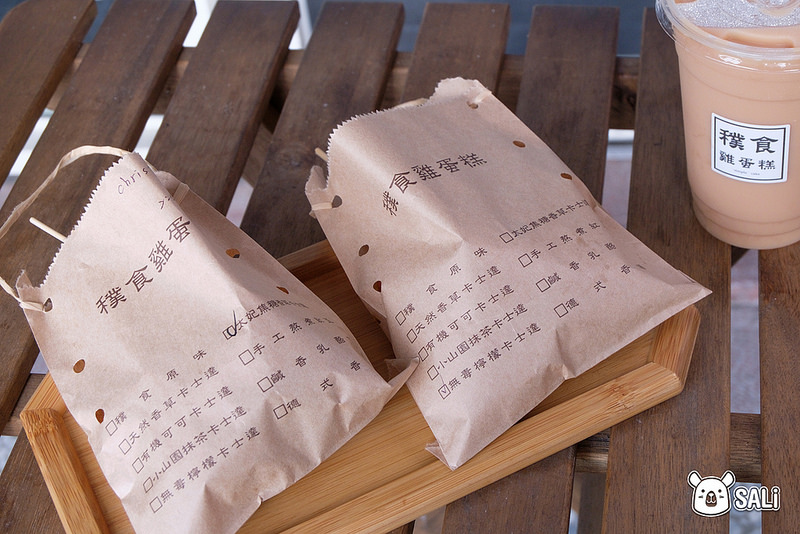 chris
樸食雞蛋
□樸食原味
□天然香草卡士達
□有機可可卡士達
□小山園抹茶卡士達
□無毒檸檬卡士達
太妃焦糖香
□手工熬煮紅
□鹹香乳酪
□德式香
樸食雞蛋糕
□樸食原味
□天然香草卡士達
□有機可可卡士達
□小山園抹茶卡士達
☑無毒檸檬卡士達
□太妃焦糖香草卡士達
□手工熬煮紅
□鹹香乳酪
□德式香
樸食
雞蛋糕
SALi